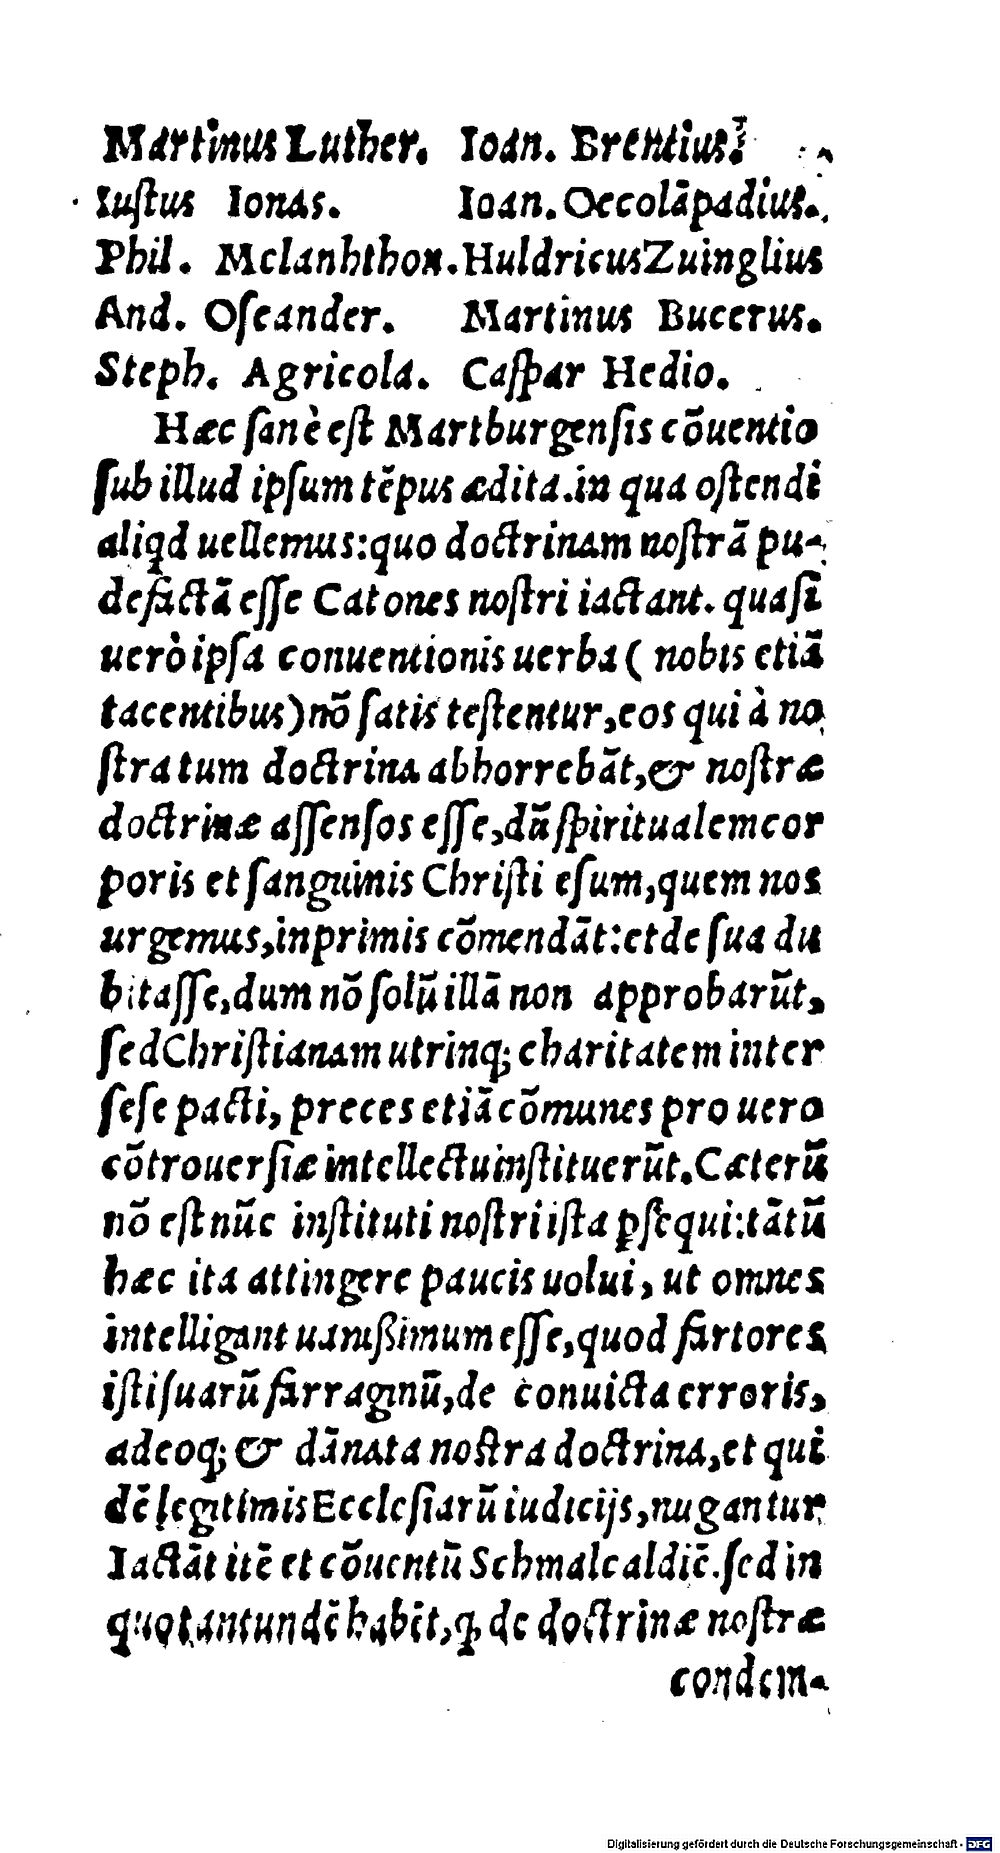 Martinus Luther. Ioan. Brentius.
Iuſtus Ionas. Ioan. Oecolãpadius.
Phil. Melanhthon. Huldricus Zuinglius
And. Oſeander. Martinus Bucerus.
Steph. Agricola. Caſpar Hedio.
Hæc ſanè eſt Martburgenſis cõuentio
ſub illud ipſum tẽpus ædita. in qua oſtendi
aliqd uellemus: quo doctrinam noſtrã pu-
defactã eſſe Catones noſtri iactant. quaſi
uerò ipſa conuentionis uerba ( nobis etiã
tacentibus) nõ ſatis teſtentur, eos qui à no
ſtra tum doctrina abhorrebãt, & noſtræ
doctrinæ aſſenſos eſſe, dũ ſpiritualem cor
poris et ſanguinis Chriſti eſum, quem nos
urgemus, inprimis cõmendãt: et de ſua du
bitaſſe, dum nõ ſolũ illã non approbarũt,
ſed Chriſtianam utrinq; charitatem inter
ſeſe pacti, preces etiã cõmunes pro uero
cõtrouerſiæ intellectu inſtituerũt. Cæterũ
nõ eſt nũc inſtituti noſtri iſta ꝑſequi: tãtũ
hæc ita attingere paucis uolui, ut omnes
intelligant uanißimum eſſe, quod fartores
iſti ſuarũ farraginũ, de conuicta erroris,
adeoq; & dãnata noſtra doctrina, et qui
dẽ legitimis Eccleſiarũ iudicijs, nugantur
Iactãt itẽ et cõuentũ Schmalcaldiẽ. ſed in
quo tantundẽ habẽt, ꝙ de doctrinæ noſtræ
condem-
Digitalisierung gefördert durch die Deutsche Forschungsgemeinschaft - DFG